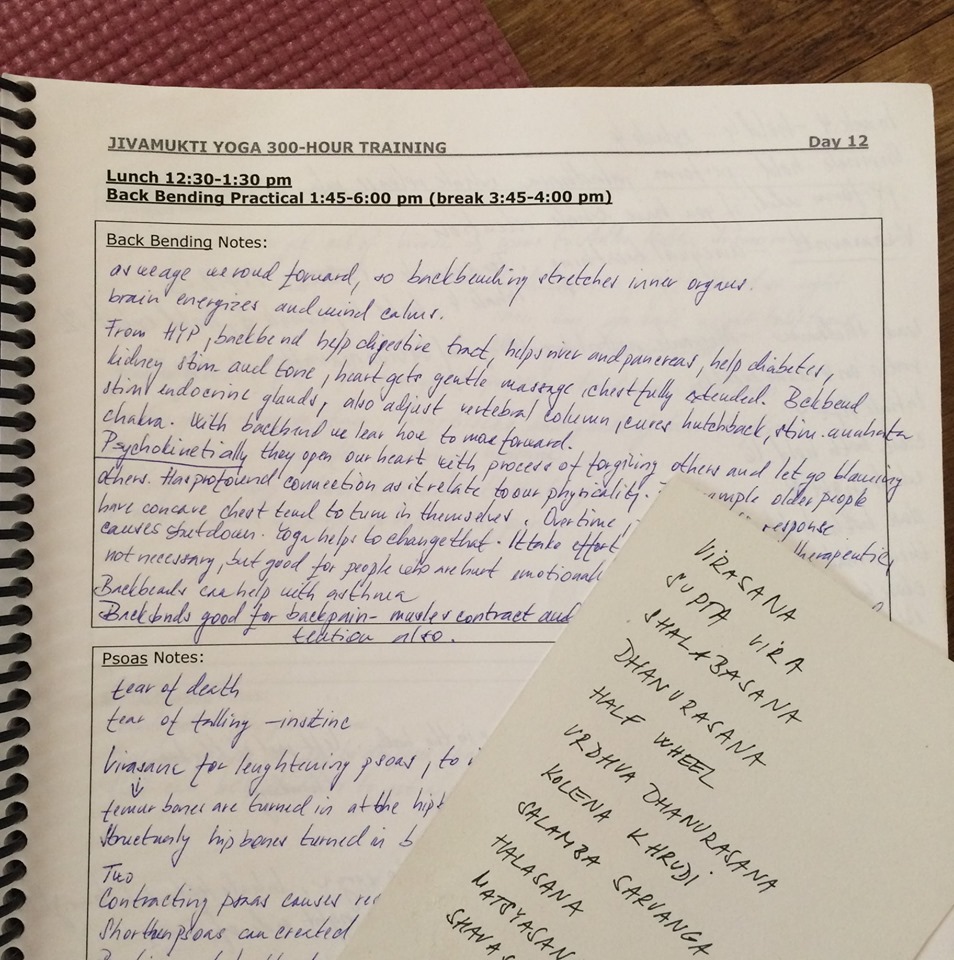 JIVAMUKTI YOGA 300-HOUR TRAINING
Day 12
Lunch 12:30-1:30 pm
Back Bending Practical 1:45-6:00 pm (break 3:45-4:00 pm)
Back Bending Notes:
as we age we roud forward, so backbending stretches inner organs.
brain energizes and mind calms.
From HYP, backbend help digestive tract, helps liver and pancreas, help diabetes,
kidney stim. and tone, heart gets gentle massage, chest fully extended. Bckbend
stim endocrine glands, also adjust vertebral column, cures hutchback, stim. anahata
chakra. With backbend we lear how to move forward.
Psychokinetially they open our heart with process of forgiving others and let go blaming
others. Has profound connection as it relate to our physicality. older people
have concave chest tend to turn in themselves. Overtime response
causes shutdown. Yoga helps to change that. It take effort therapeutics
not necessary, but good for people who are hurt
Backbends can help with asthma
Backbnds good for backpain- muscles contract and
tention also.
Psoas Notes:
fear of death
fear of falling -instinc
Virasana for lenghtening psoas, to
femur bones are turned in at the
Structurly hip bones turned in
Two
Contracting psoas causes
Shorten psoas can created
VIRASANA
SUPTA VIRA
SHALABASANA
DHANURASANA
HALF WHEEL
URDHVA DHANURASANA
KOLENA K HRUDI
SALAMBA SARVANGA
HALASANA
MATSYASAN
SHAVAS